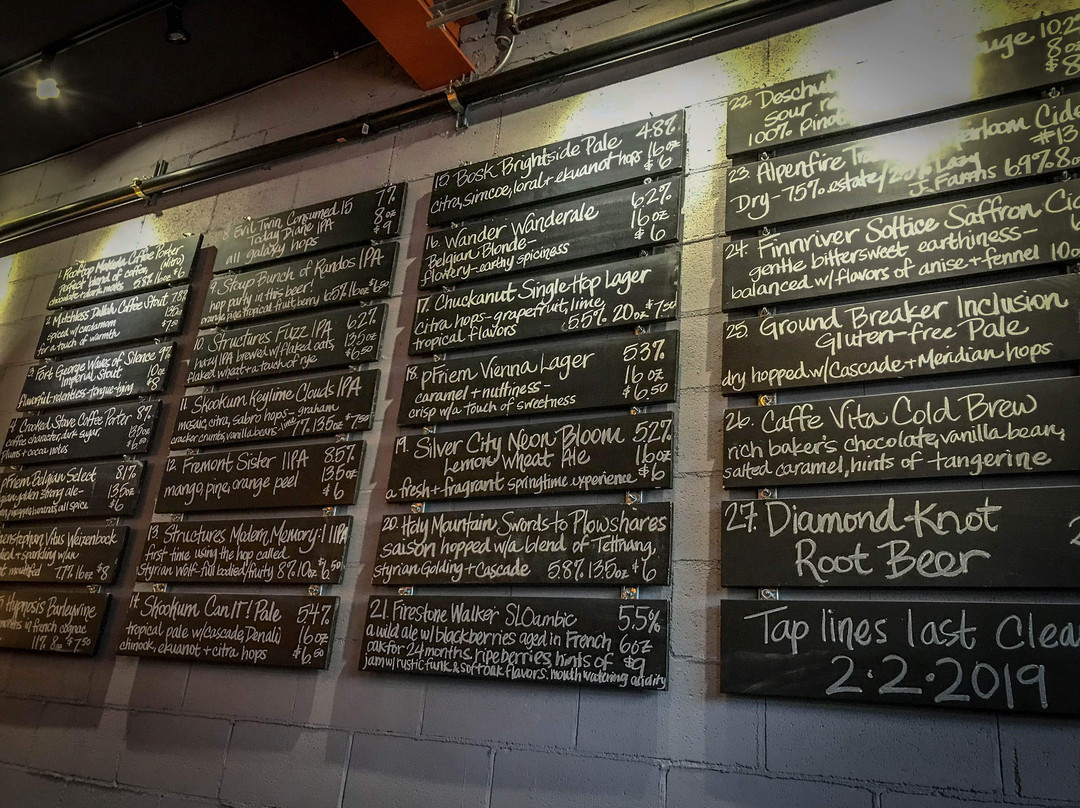 1. Rooftop Coffee Porter
(Nitro)
blend of coffee,
chocolate + dark malts 5.8% 16oz $6
2. Matchless Dallah Coffee Stout 7.8%
spiced w/cardamom
for a touch of warmth
$7.50
3. Fort George Waves of Silence 9%
Imperial Stout 10oz
Flavorful-relentless-tongue-tying $8
4. Crooked Stave Coffee Porter 8%
coffee character, dark sugar, 13.5oz
plums + cocoa notes $6
pFriem Belgian Select 8.1%
golden strong ale- 13.5oz
all spice $6
Vitus Weizenbock
+ sparkling w/an
7.7% 16oz $8
Hypnosis Barleywine
months in french cognac
11% 8oz $7.50
8. Evil Twin Consumed 15 7%
Today Diane IPA 8oz
all galaxy hops $9
9. Stoup Bunch of Randos IPA
hop party in this beer!
orange, pine, tropical fruit, berry 6.5% 16oz $6.50
10. Structures Fuzz IPA 6.2%
hazy IPA brewed w/flaked oats, 13.5oz
flaked wheat + a touch of rye $6.50
11. Skookum Keylime Clouds IPA
mosaic, citra, sabro hops - graham
cracker crumbs, vanilla beans, lime 7% 13.5oz $7.50
12. Fremont Sister IIPA 8.5%
mango, pine, orange peel 13.5oz
$6
13. Structures Modern Memory: I IIPA
first time using the hop called
Styrian Wolf-full bodied, fruity 8% 10oz $6.50
14. Skookum Can IT! Pale 5.4%
tropical pale w/Cascade, Denali 16oz
chinook, ekuanot + citra hops $6.50
15. Bosk Brightside Pale 4.8%
citra, simcoe, loral + ekuanot hops 16oz
$6
16. Wander Wanderale 6.2%
Belgian Blonde- 16oz
flowery-earthy spiciness $6
17. Chuckanut Single Hop Lager
citra hops-grapefruit, lime,
tropical flavors 5.5% 20oz $7.50
18. pFriem Vienna Lager 5.3%
caramel + nuttiness- 16oz
crisp w/a touch of sweetness $6.50
19. Silver City Neon Bloom 5.2%
Lemon Wheat Ale 16oz
a fresh + fragrant springtime experience $6
20. Holy Mountain Swords to Plowshares
saison hopped w/a blend of Tettnang,
styrian Golding + Cascade 5.8% 13.5oz $6
21. Firestone Walker SLOambic 5.5%
a wild ale w/blackberries aged in French 6oz
oak for 24 months. ripe berries, hints of $9
jam w/rustic funk & soft oak flavors. mouth watering acidity
22. Deschu
sour
100% pino
10.2%
23. Alpenfire irloom Cide
#13
Dry-75% estate/25% Lazy
J. Farms 6.9% 8oz
24. Finnriver Soltice Saffron Cid
gentle bittersweet earthiness-
balanced w/flavors of anise + fennel 10oz
25. Ground Breaker Inclusion
Gluten-free Pale
dry hopped w/Cascade + Meridian hops
26. Caffe Vita Cold Brew
rich baker's chocolate, vanilla bean,
salted caramel, hints of tangerine
27. Diamond Knot
Root Beer
Tap lines last Clea
2.2.2019